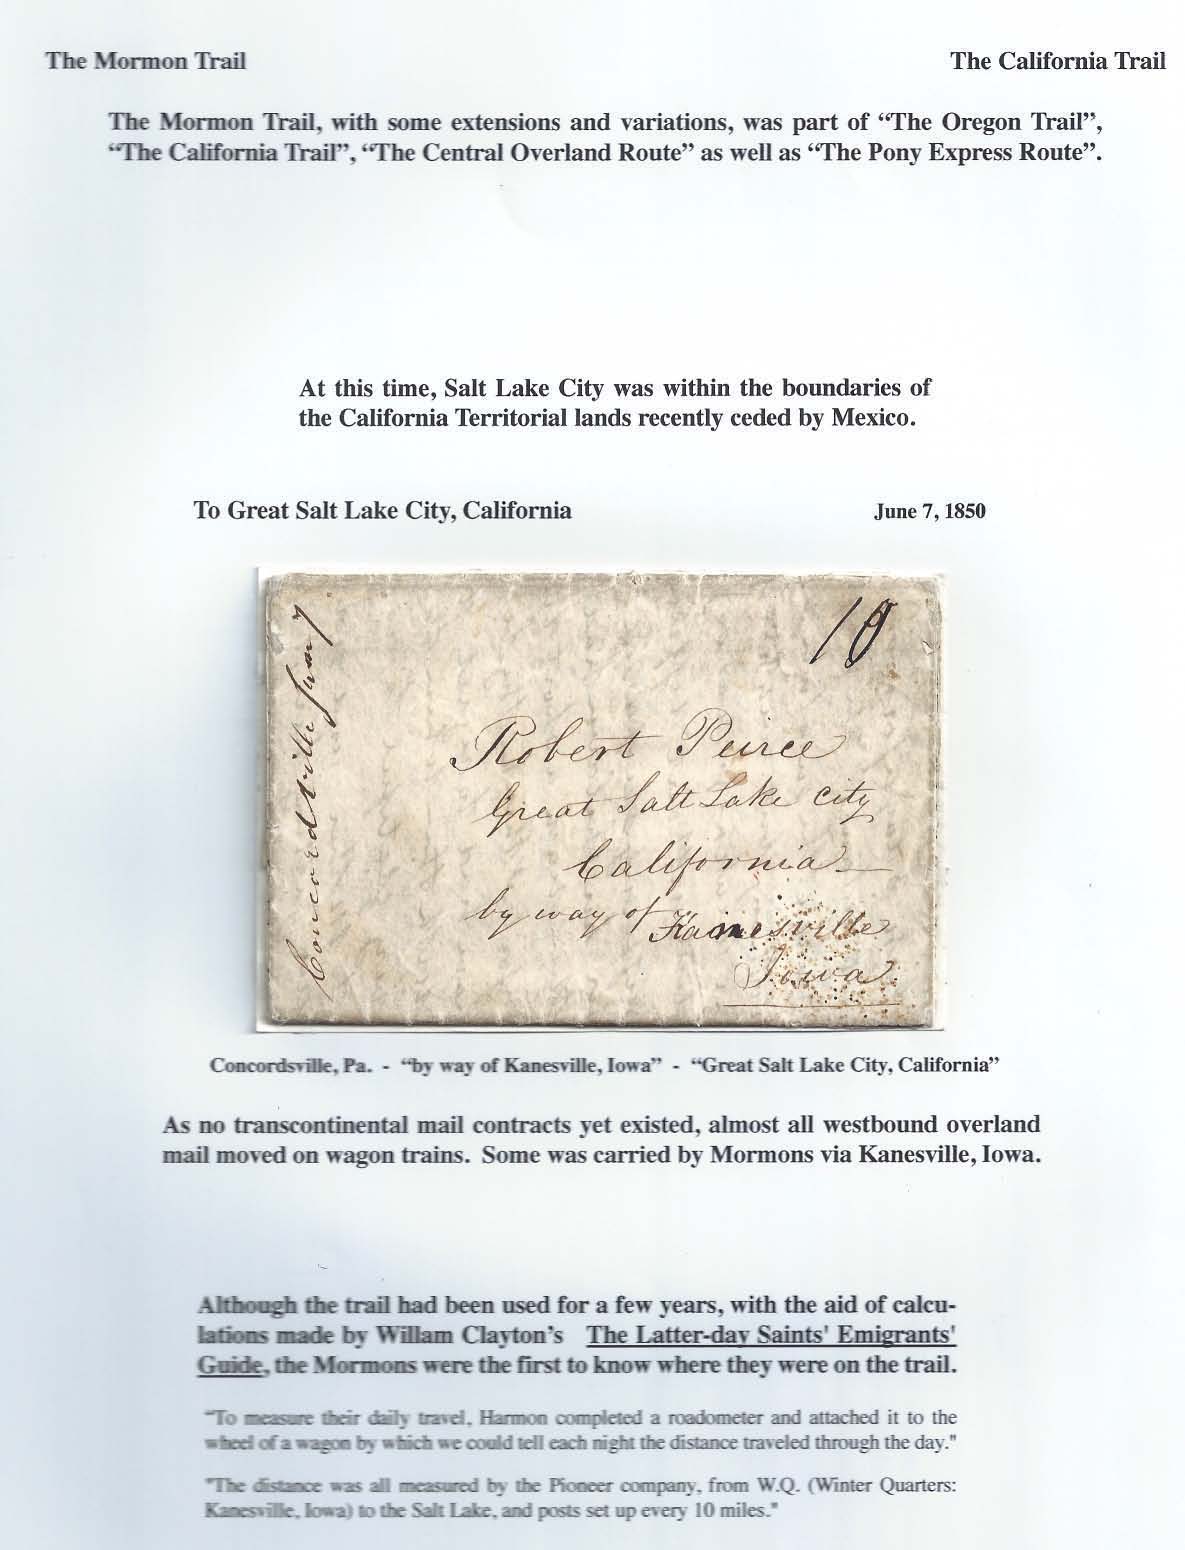 The Mormon Trail
The California Trail
The Mormon Trail, with some extensions and variations, was part of “The Oregon Trail”,
“The California Trail”, “The Central Overland Route” as well as “The Pony Express Route”.
At this time, Salt Lake City was within the boundaries of
the California Territorial lands recently ceded by Mexico.
To Great Salt Lake City, California
June 7, 1850
Concordville June 7
10
Robert Peirce
Great Salt Lake city
California
by way of Kanesville
Iowa
Concordsville, Pa. - “by way of Kanesville, Iowa” - “Great Salt Lake City, California”
As no transcontinental mail contracts yet existed, almost all westbound overland
mail moved on wagon trains. Some was carried by Mormons via Kanesville, Iowa.
Although the trail had been used for a few years, with the aid of calcu-
lations made by Willam Clayton’s The Latter-day Saints' Emigrants'
Guide, the Mormons were the first to know where they were on the trail.
"To measure their daily travel, Harmon completed a roadometer and attached it to the
wheel of a wagon by which we could tell each night the distance traveled through the day."
"The distance was all measured by the Pioneer company, from W.Q. (Winter Quarters:
Kanesville, Iowa) to the Salt Lake, and posts set up every 10 miles."